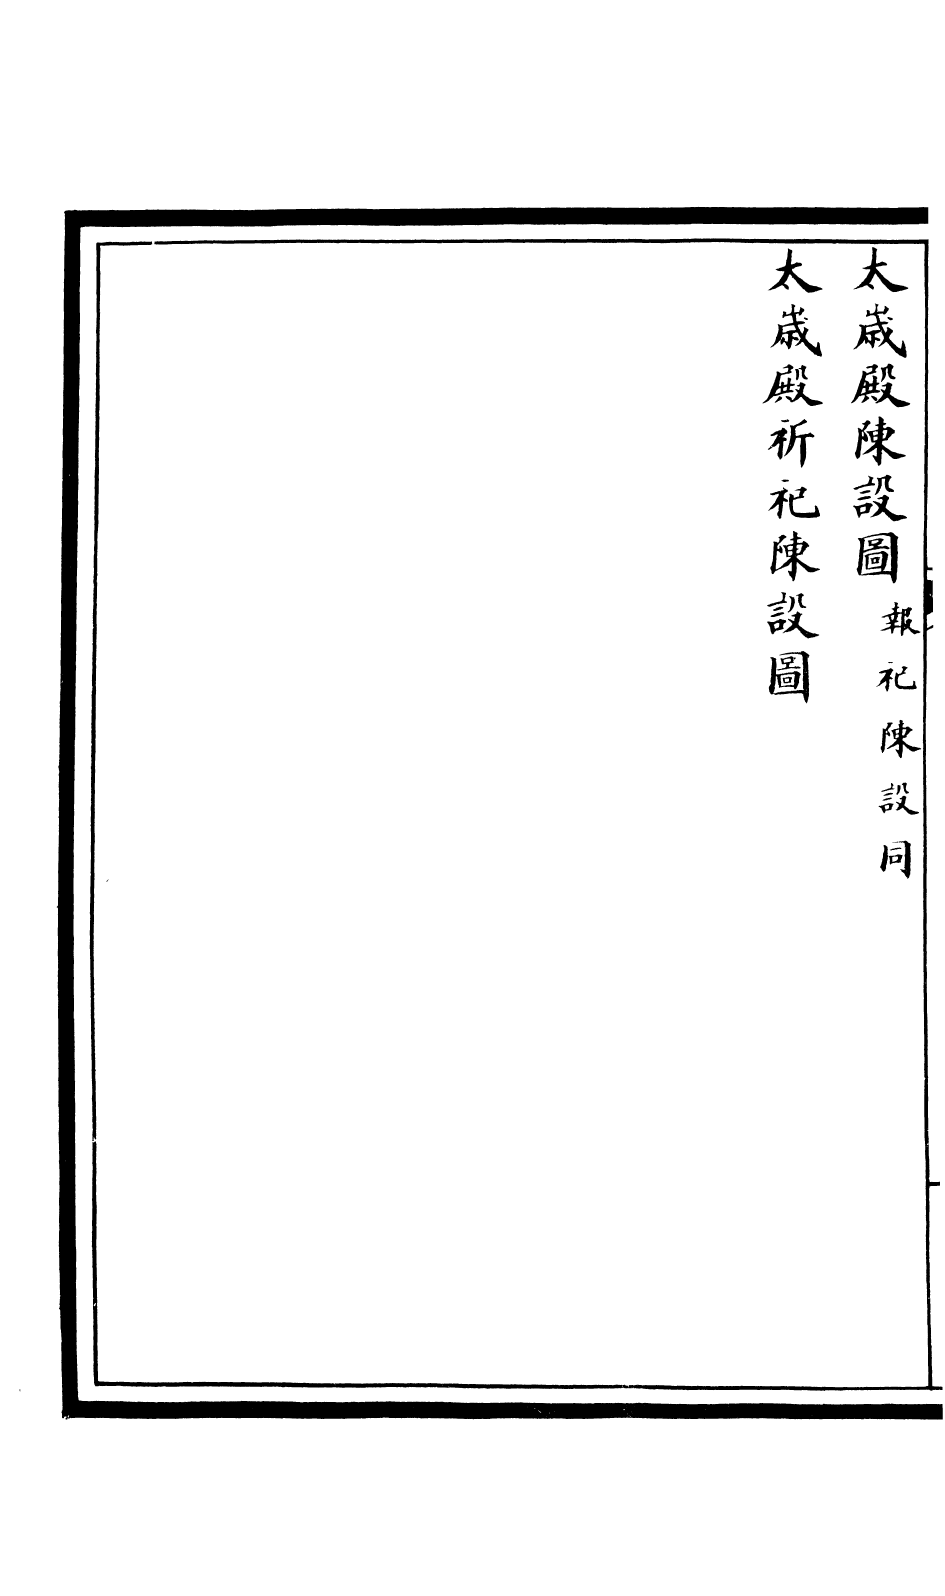 太歲殿陳設圖報祀陳設同
太歲殿祈祀陳設圖